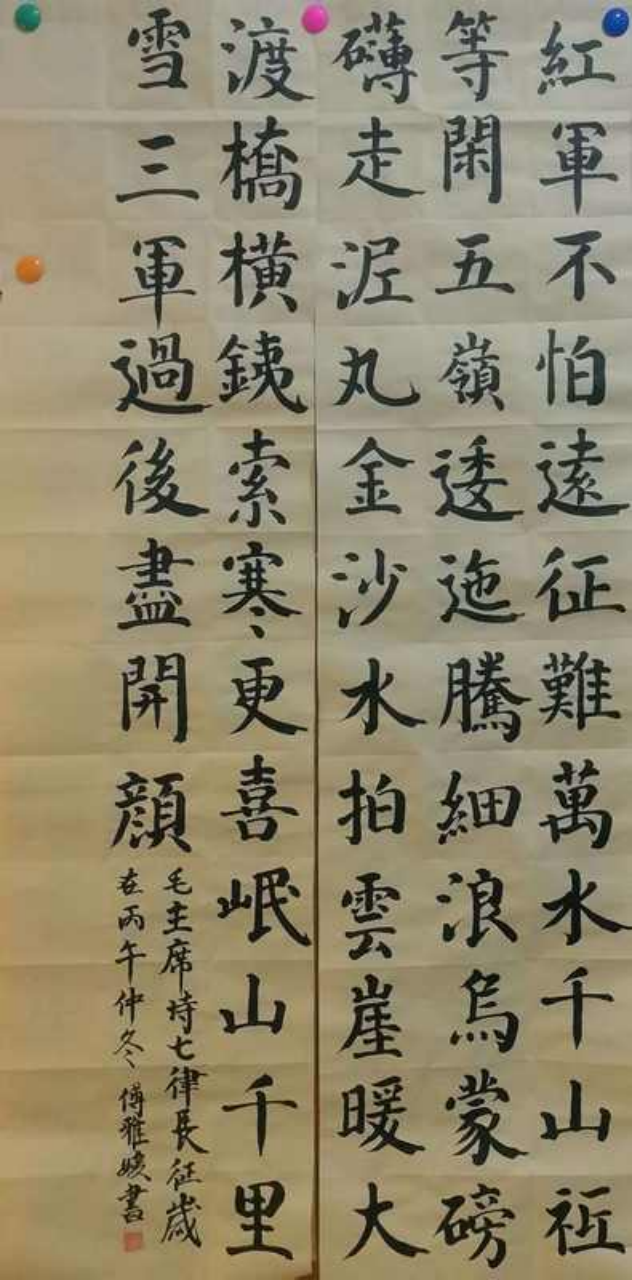 紅軍不怕遠征難萬水千山祗
等閑五嶺逶迤騰細浪烏蒙磅
礴走泥丸金沙水拍雲崖暖大
渡橋橫銕索寒更喜岷山千里
雪三軍過後盡開顏
毛主席詩七律長征歲
在丙午仲冬傅雅媛書